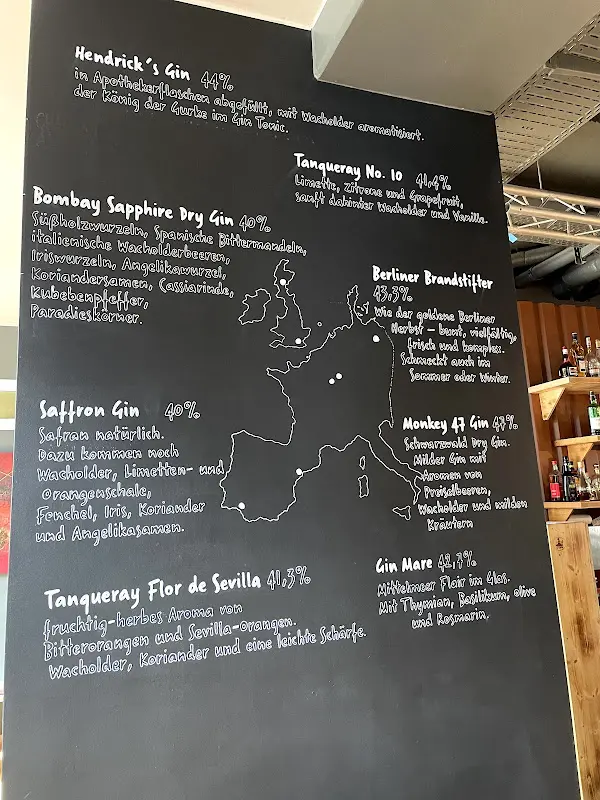 Hendrick's Gin 44%
in Apothekerflaschen abgefüllt, mit Wacholder aromatisiert.
der König der Gurke im Gin Tonic.
Tanqueray No. 10 41,4%
Limette, Zitrone und Grapefruit,
sanft dahinter Wacholder und Vanille.
Bombay Sapphire Dry Gin 40%
Süßholzwurzeln, Spanische Bittermandeln,
italienische Wacholderbeeren,
Iriswurzeln, Angelikawurzel,
Koriandersamen, Cassiarinde,
Kubebenpfeffer,
Paradieskörner.
Berliner Brandstifter
43,3%
Wie der goldene Berliner
Herbst – bunt, vielfältig,
frisch und komplex.
Schmeckt auch im
Sommer oder Winter.
Saffron Gin 40%
Safran natürlich.
Dazu kommen noch
Wacholder, Limetten- und
Orangenschale,
Fenchel, Iris, Koriander
und Angelikasamen.
Monkey 47 Gin 47%
Schwarzwald Dry Gin.
Milder Gin mit
Aromen von
Preiselbeeren,
Wacholder und milden
Kräutern
Tanqueray Flor de Sevilla 41,3%
fruchtig-herbes Aroma von
Bitterorangen und Sevilla-Orangen.
Wacholder, Koriander und eine leichte Schärfe.
Gin Mare 42,7%
Mittelmeer Flair im Glas.
Mit Thymian, Basilikum, Olive
und Rosmarin.